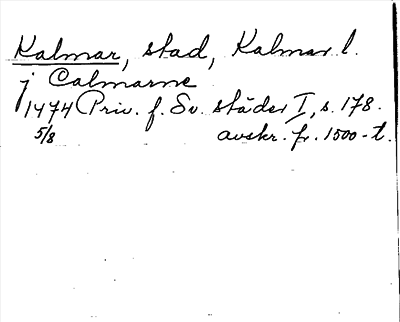 Kalmar, stad, Kalmar l.
j Calmarne
1474 Priv. f. Sv. städer I, s. 178.
5/8 avskr. fr. 1500-t.